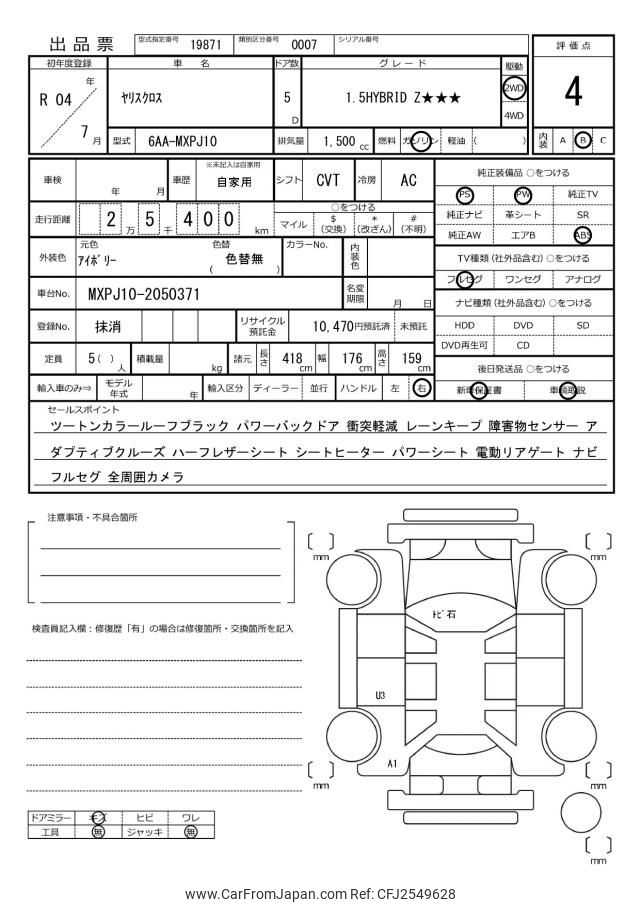 出品票 型式指定番号 19871 類別区分番号 0007 シリアル番号
評価点
4
内装 A B C
初年度登録 車名 ドア数 グレード 駆動
R 04 年 7 月
ヤリスクロス 5 D 1.5HYBRID Z★★★ 2WD 4WD
型式 6AA-MXPJ10 排気量 1,500 cc 燃料 ガソリン 軽油 ( )
車検 年 月 車歴 ※未記入は自家用 自家用 シフト CVT 冷房 AC
走行距離 2 5 万 千 4 0 0 km
○をつける
マイル $ (交換) * (改ざん) # (不明)
外装色 元色 アイボリー 色替 ( 色替無 ) カラーNo. 内装色
車台No. MXPJ10-2050371 名変期限 月 日
登録No. 抹消 リサイクル預託金 10,470円預託済 未預託
定員 5 ( ) 人 積載量 kg 諸元 長さ 418 cm 幅 176 cm 高さ 159 cm
輸入車のみ⇒ モデル年式 年 輸入区分 ディーラー 並行 ハンドル 左 右
純正装備品 ○をつける
PS PW 純正TV
純正ナビ 革シート SR
純正AW エアB ABS
TV種類 (社外品含む) ○をつける
フルセグ ワンセグ アナログ
ナビ種類 (社外品含む) ○をつける
HDD DVD SD
DVD再生可 CD
後日発送品 ○をつける
新車保証書 車輌取説
セールスポイント
ツートンカラールーフブラック パワーバックドア 衝突軽減 レーンキープ 障害物センサー ア
ダプティブクルーズ ハーフレザーシート シートヒーター パワーシート 電動リアゲート ナビ
フルセグ 全周囲カメラ
注意事項・不具合箇所
検査員記入欄：修復歴「有」の場合は修復箇所・交換箇所を記入
mm
mm
トビ石
U3
A1
mm
mm
mm
ドアミラー キズ ヒビ ワレ
工具 無 ジャッキ 無
www.CarFromJapan.com Ref: CFJ2549628